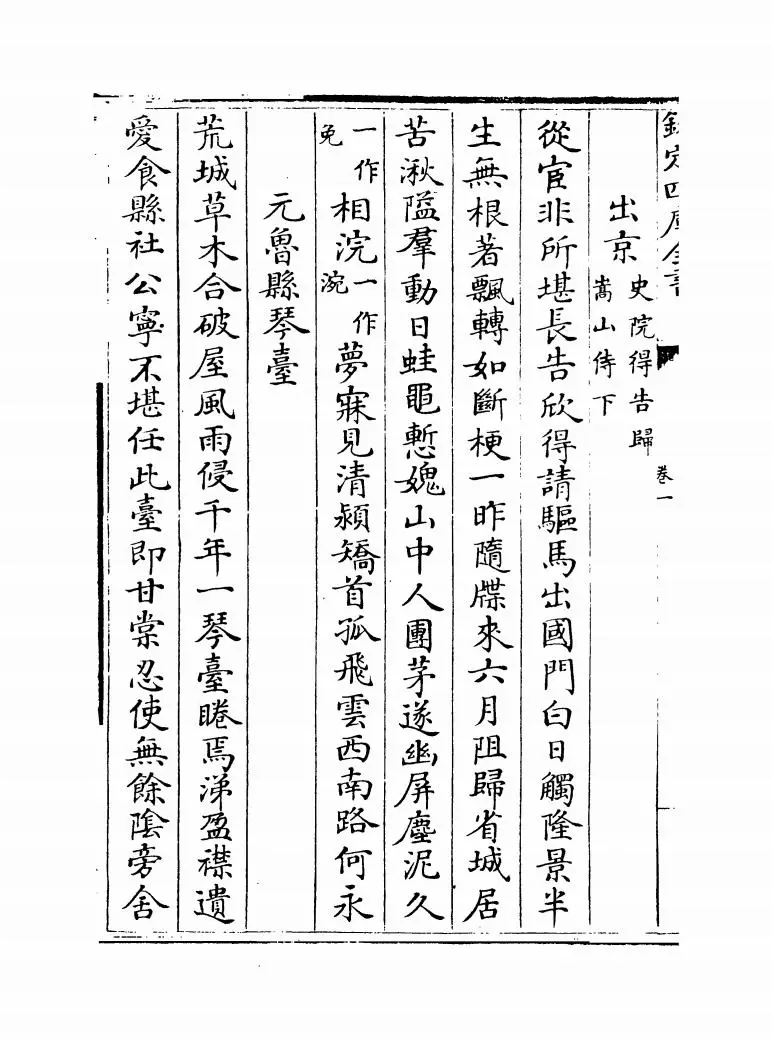 欽定四庫全書
卷一
出京史院得告歸嵩山侍下
從宦非所堪長告欣得請驅馬出國門白日觸隆景半
生無根著飄轉如斷梗一昨隨牒來六月阻歸省城居
苦湫隘羣動日蛙黽慙媿山中人團茅遂幽屏塵泥久
一作免相浣一作涴夢寐見清潁矯首孤飛雲西南路何永
元魯縣琴臺
荒城草木合破屋風雨侵千年一琴臺睠焉涕盈襟遺
愛食縣社公寧不堪任此臺即甘棠忍使無餘隂旁舍